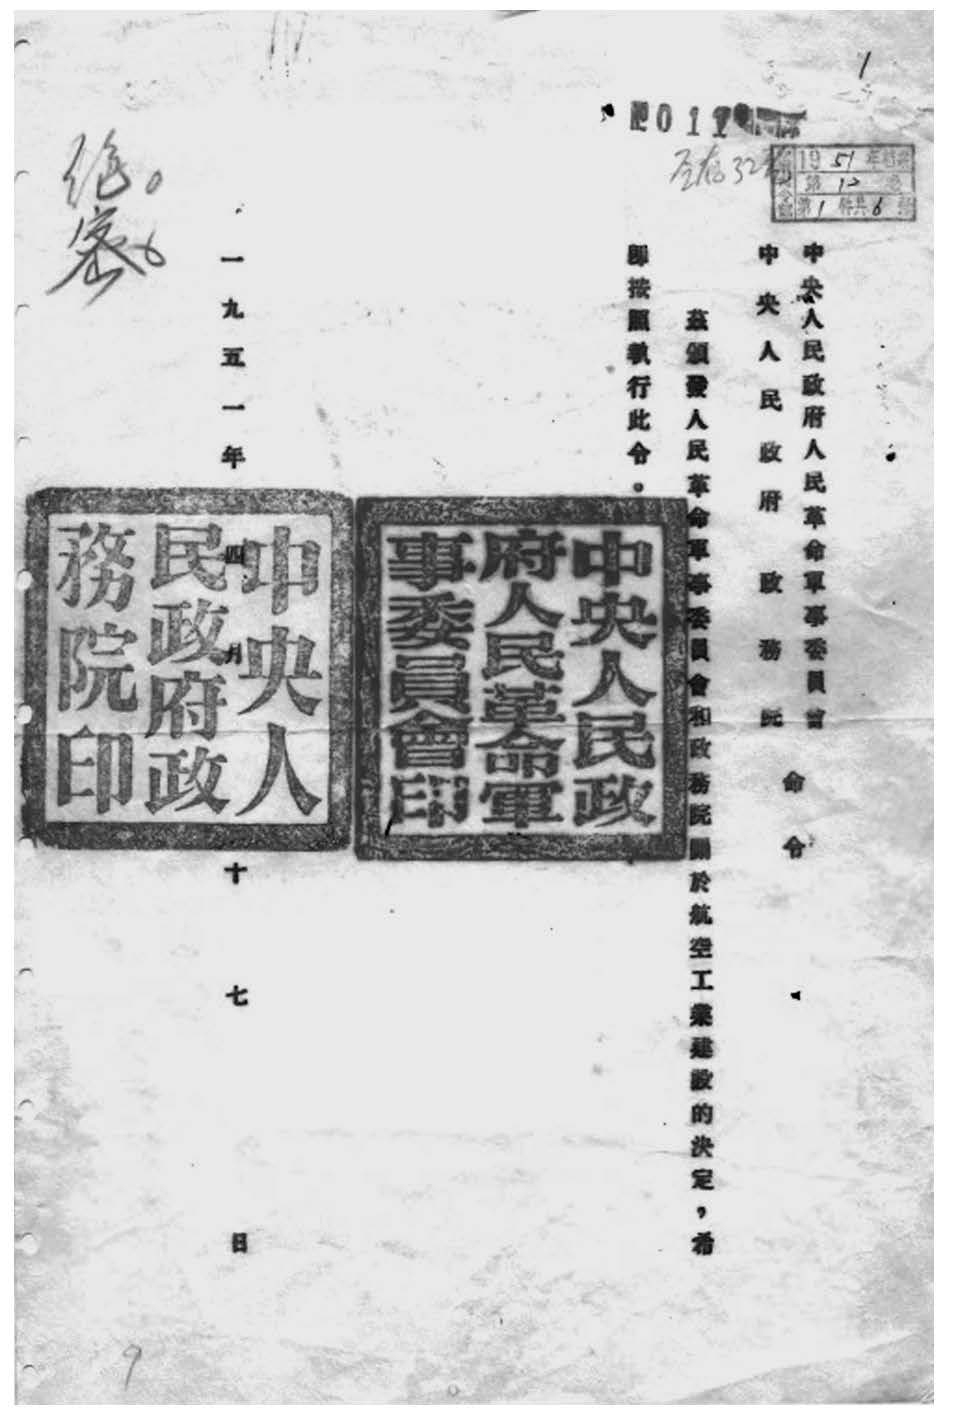 1
011
全存32
1951年
第12卷
第1件共6張
絕密
中央人民政府人民革命軍事委員會
中央人民政府政務院
命令
茲頒發人民革命軍事委員會和政務院關於航空工業建設的決定，希
即按照執行此令。
中央人民政
府人民革命軍
事委員會印
一九五一年四月十七日
中央人
民政府政
務院印
9